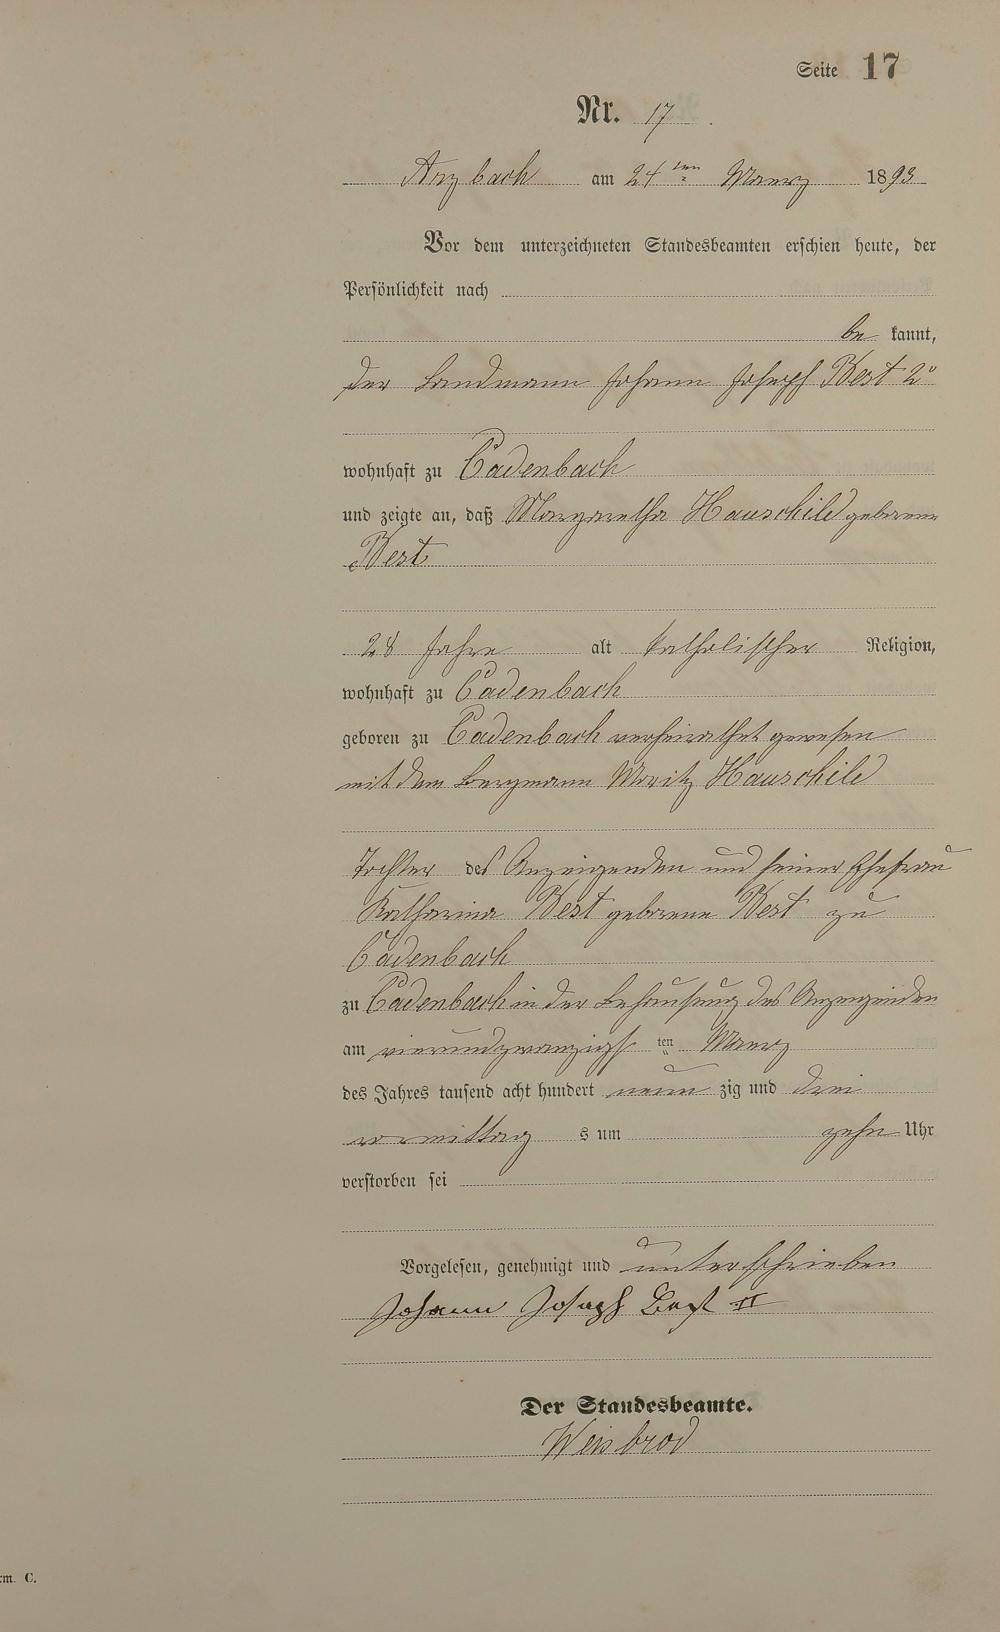 Seite 17
Nr. 17.
Arzbach am 24ten Maerz 1893
Vor dem unterzeichneten Standesbeamten erschien heute, der
Persönlichkeit nach
be kannt,
der Landmann Johann Joseph Best 2r
wohnhaft zu Cadenbach
und zeigte an, daß Margaretha Hauschild geborene
Best
28 Jahre alt katholischer Religion,
wohnhaft zu Cadenbach
geboren zu Cadenbach verheirathet gewesen
mit dem Bergmann Moritz Hauschild
Tochter des Anzeigenden und seiner Ehefrau
Katharina Best geborene Best zu
Cadenbach
zu Cadenbach in der Behausung des Anzeigenden
am vierundzwanzigs ten Maerz
des Jahres tausend acht hundert neun zig und drei
vormittag s um zehn Uhr
verstorben sei
Vorgelesen, genehmigt und unterschrieben
Johann Joseph Best II
Der Standesbeamte.
Weisbrod
rm. C.